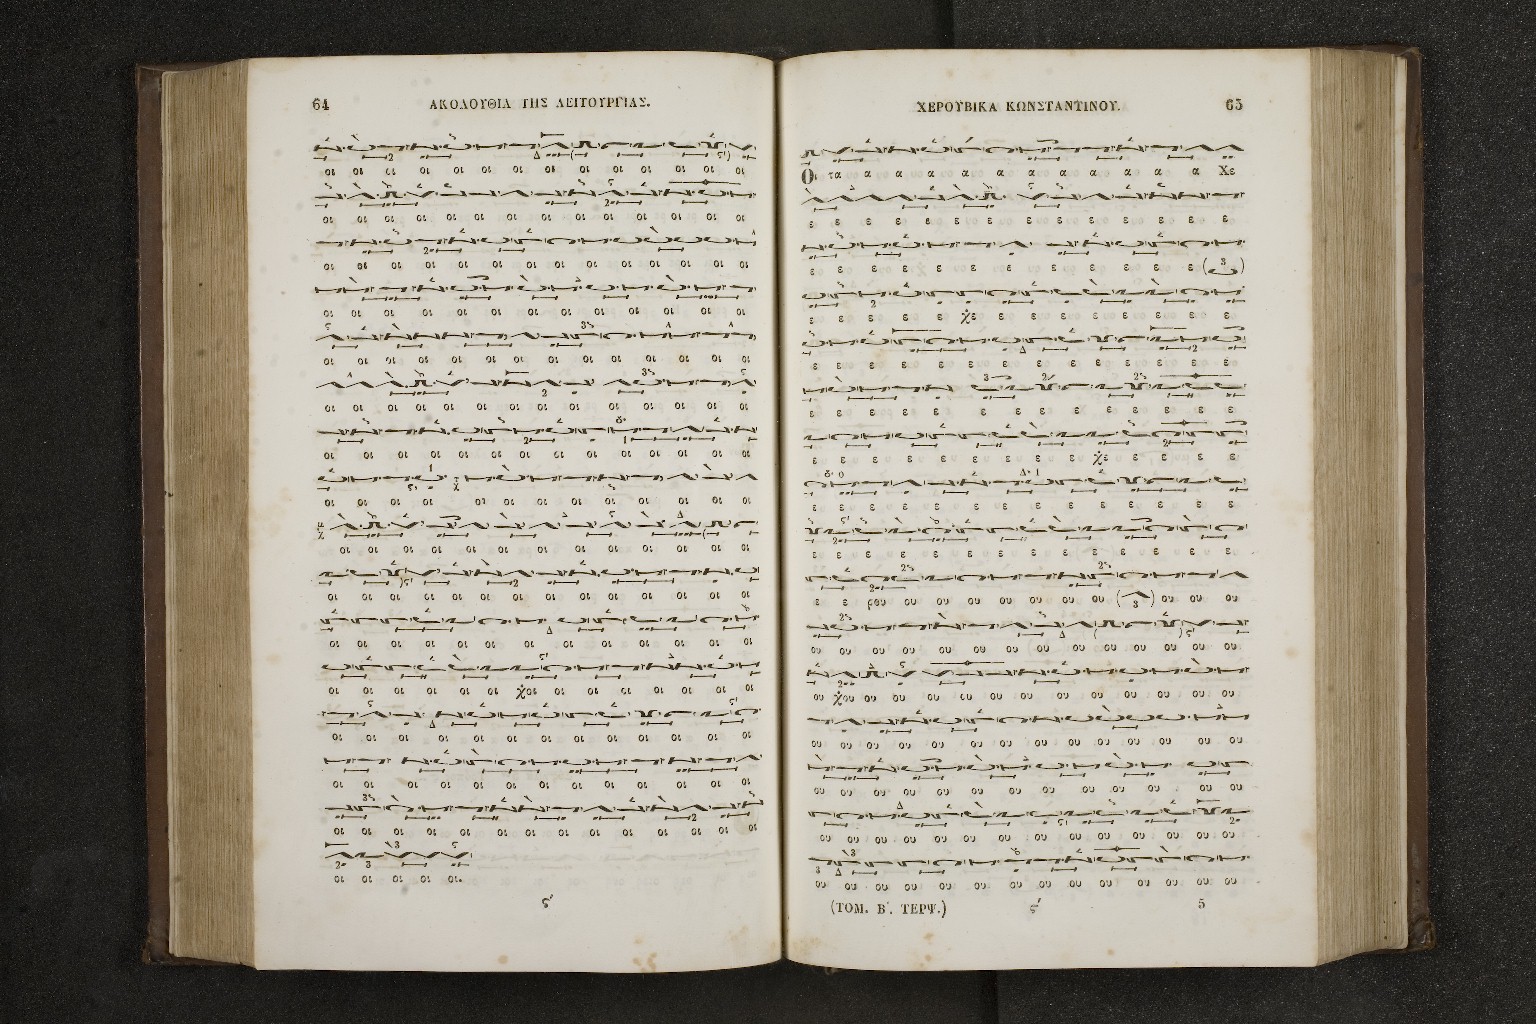 64
ΑΚΟΛΟΥΘΙΑ ΤΗΣ ΛΕΙΤΟΥΡΓΙΑΣ.
οι οι οι οι οι οι οι οι οι οι οι οι οι
οι οι οι οι οι οι οι οι οι οι οι οι οι
οι οι οι οι οι οι οι οι οι οι οι οι οι
οι οι οι οι οι οι οι οι οι οι οι οι
οι οι οι οι οι οι οι οι οι οι οι οι οι
οι οι οι οι οι οι οι οι οι οι οι οι οι
οι οι οι οι οι οι οι οι οι οι οι οι οι
οι οι οι οι οι οι οι οι οι οι οι οι
οι οι οι οι οι οι οι οι οι οι οι οι
οι οι οι οι οι οι οι οι οι οι οι οι οι
οι οι οι οι οι οι οι οι οι οι οι οι
οι οι οι οι οι οι χοι οι οι οι οι οι οι
οι οι οι οι οι οι οι οι οι οι οι οι
οι οι οι οι οι οι οι οι οι οι οι οι
οι οι οι οι οι οι οι οι οι οι οι οι οι
οι οι οι οι οι.
ϛ´
ΧΕΡΟΥΒΙΚΑ ΚΩΝΣΤΑΝΤΙΝΟΥ.
65
Οι τα α α α α α α α α α α α Χε
ε ε ε ε ε ε ε ε ε ε ε ε ε
ε ε ε ε ε ε ε ε ε ε ε ε
ε ε ε ε ε χε ε ε ε ε ε ε ε ε
ε ε ε ε ε ε ε ε ε ε ε ε ε
ε ε ε ε ε ε ε ε ε ε ε ε ε
ε ε ε ε ε ε ε ε ε χε ε ε ε ε
ε ε ε ε ε ε ε ε ε ε ε ε ε
ε ε ε ε ε ε ε ε ε ε ε ε ε ε
ε ε ρου ου ου ου ου ου ου ου ου ου ου
ου ου ου ου ου ου ου ου ου ου ου ου ου
ου χου ου ου ου ου ου ου ου ου ου ου ου
ου ου ου ου ου ου ου ου ου ου ου ου ου
ου ου ου ου ου ου ου ου ου ου ου ου
ου ου ου ου ου ου ου ου ου ου ου ου ου ου
ου ου ου ου ου ου ου ου ου ου ου ου ου
(ΤΟΜ. Β΄. ΤΕΡΨ.)
ϛ´
5